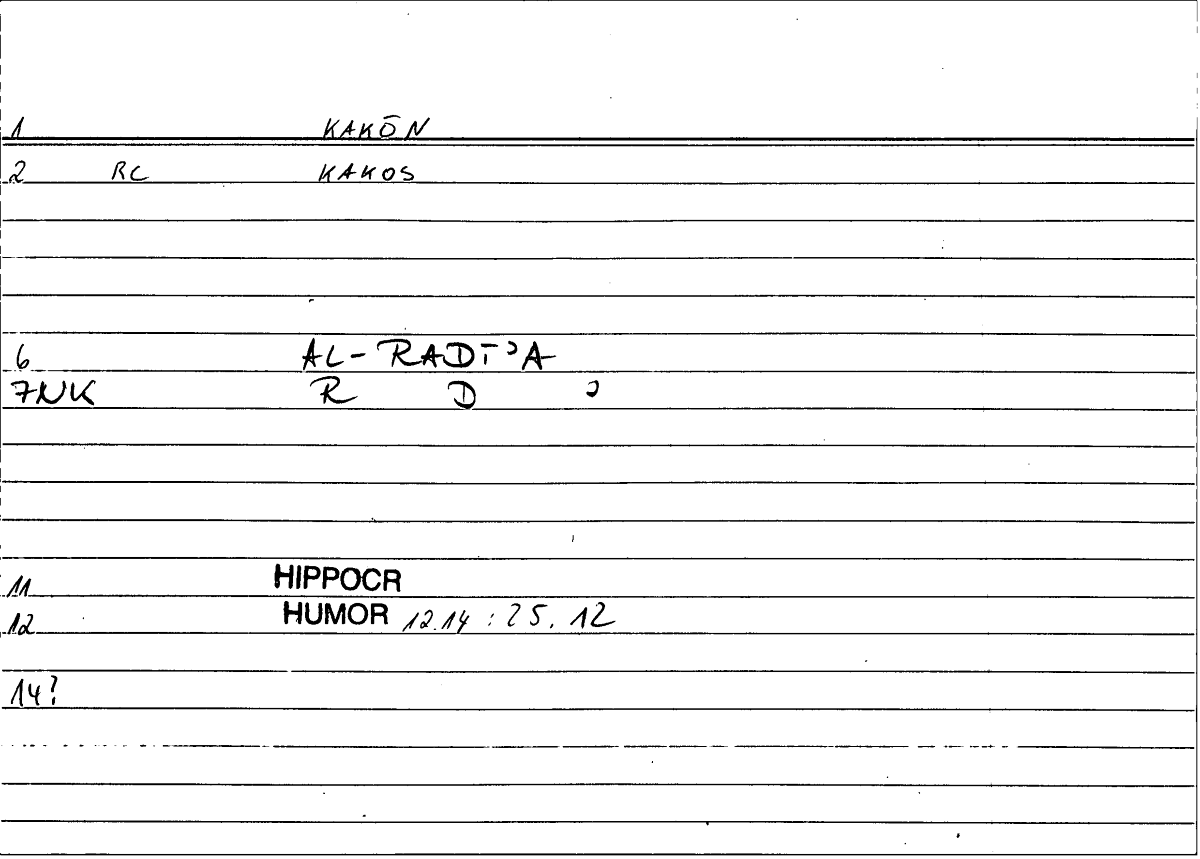 1 KAKŌN
2 RC KAKOS
6 AL-RADĪʾA
7NK R D ʾ
11 HIPPOCR
12 HUMOR 12.14 : 25. 12
14?